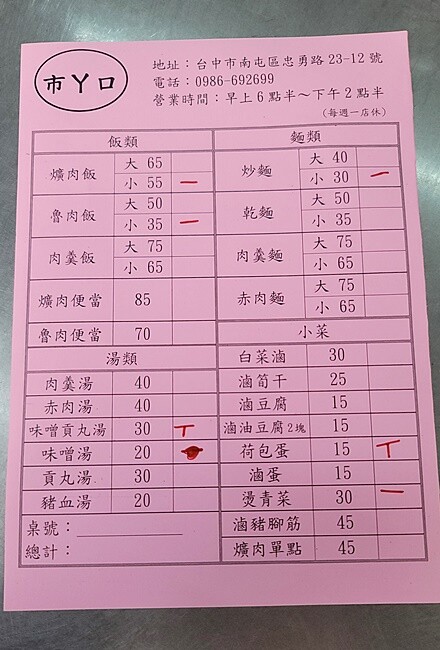 市ㄚ口
地址：台中市南屯區忠勇路23-12號
電話：0986-692699
營業時間：早上6點半～下午2點半
(每週一店休)
飯類
爌肉飯 大 65
小 55 一
魯肉飯 大 50
小 35 一
肉羹飯 大 75
小 65
爌肉便當 85
魯肉便當 70
湯類
肉羹湯 40
赤肉湯 40
味噌貢丸湯 30 丅
味噌湯 20
貢丸湯 30
豬血湯 20
桌號：
總計：
麵類
炒麵 大 40
小 30 一
乾麵 大 50
小 35
肉羹麵 大 75
小 65
赤肉麵 大 75
小 65
小菜
白菜滷 30
滷筍干 25
滷豆腐 15
滷油豆腐2塊 15
荷包蛋 15 丅
滷蛋 15
燙青菜 30 一
滷豬腳筋 45
爌肉單點 45